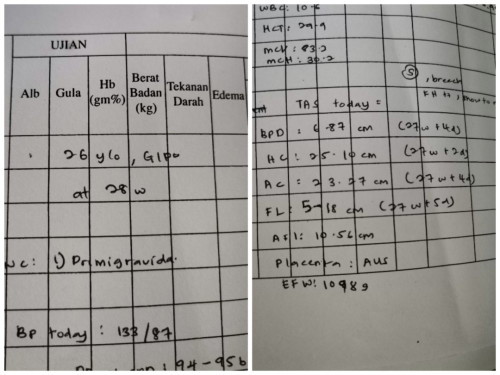 UJIAN
Alb
Gula
Hb
(gm%)
Berat
Badan
(kg)
Tekanan
Darah
Edema
26 y/o, G1P0
at 28 w
1) Primigravida
BP today : 133/87
: 94 - 95 b
WBC: 10.6
HCT : 29.9
MCV : 83.2
MCH : 30.2
S , breech
TAS today =
BPD : 6.87 cm (27w + 4d)
HC : 25.10 cm (27w + 2d)
AC : 23.27 cm (27w + 4d)
FL : 5.18 cm (27w + 5d)
AFI : 10.56 cm
Placenta : AUS
EFW: 1098g